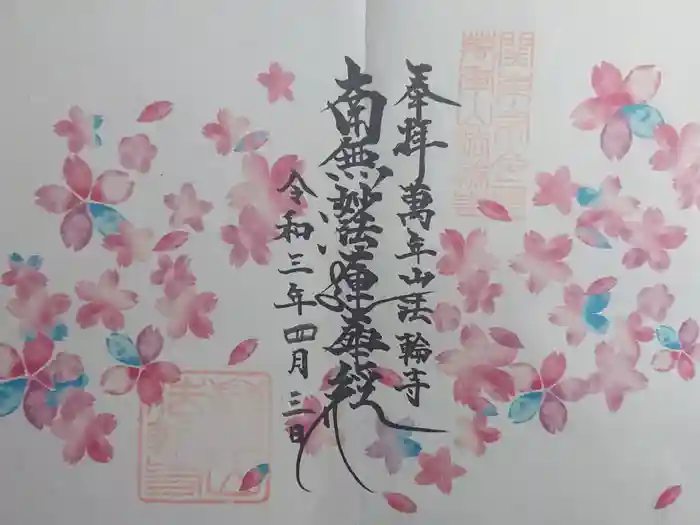 奉拝 萬年山法輪寺
南無妙法蓮華経
令和三年四月三日